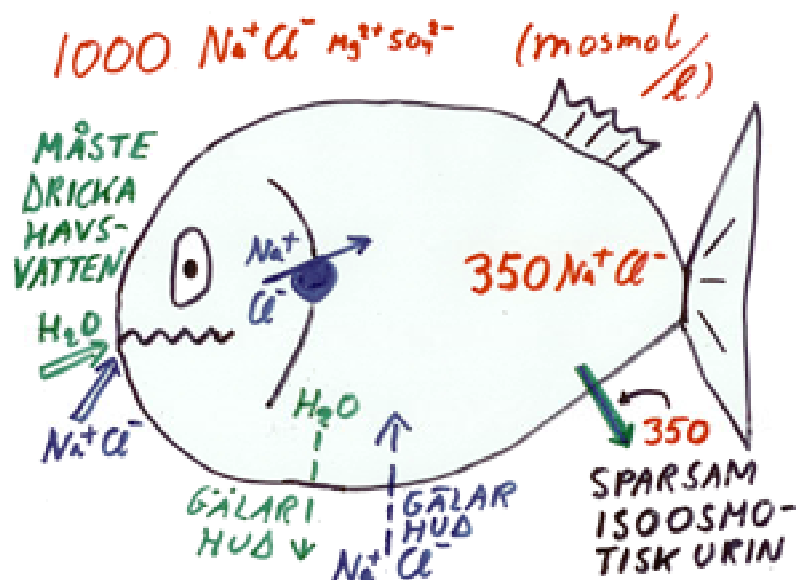 1000 Na⁺Cl⁻ Mg²⁺ SO₄²⁻ (mosmol/l)
MÅSTE
DRICKA
HAVS-
VATTEN
H₂O
Na⁺Cl⁻
Na⁺
Cl⁻
350 Na⁺Cl⁻
H₂O
GÄLAR
HUD
GÄLAR
HUD
Na⁺Cl⁻
350
SPARSAM
ISOOSMO-
TISK URIN